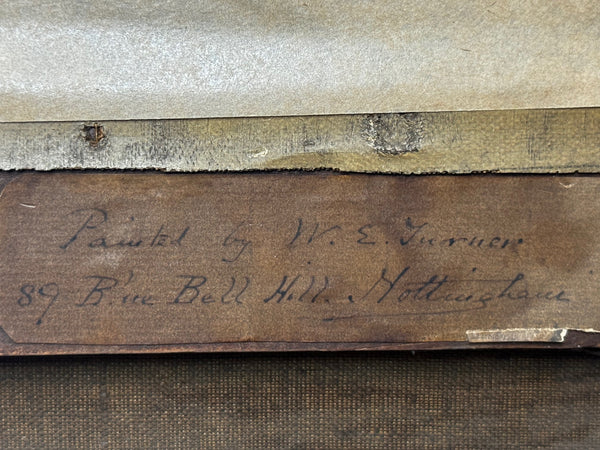 Painted by W. E. Turner
89 B'ue Bell Hill. Nottingham